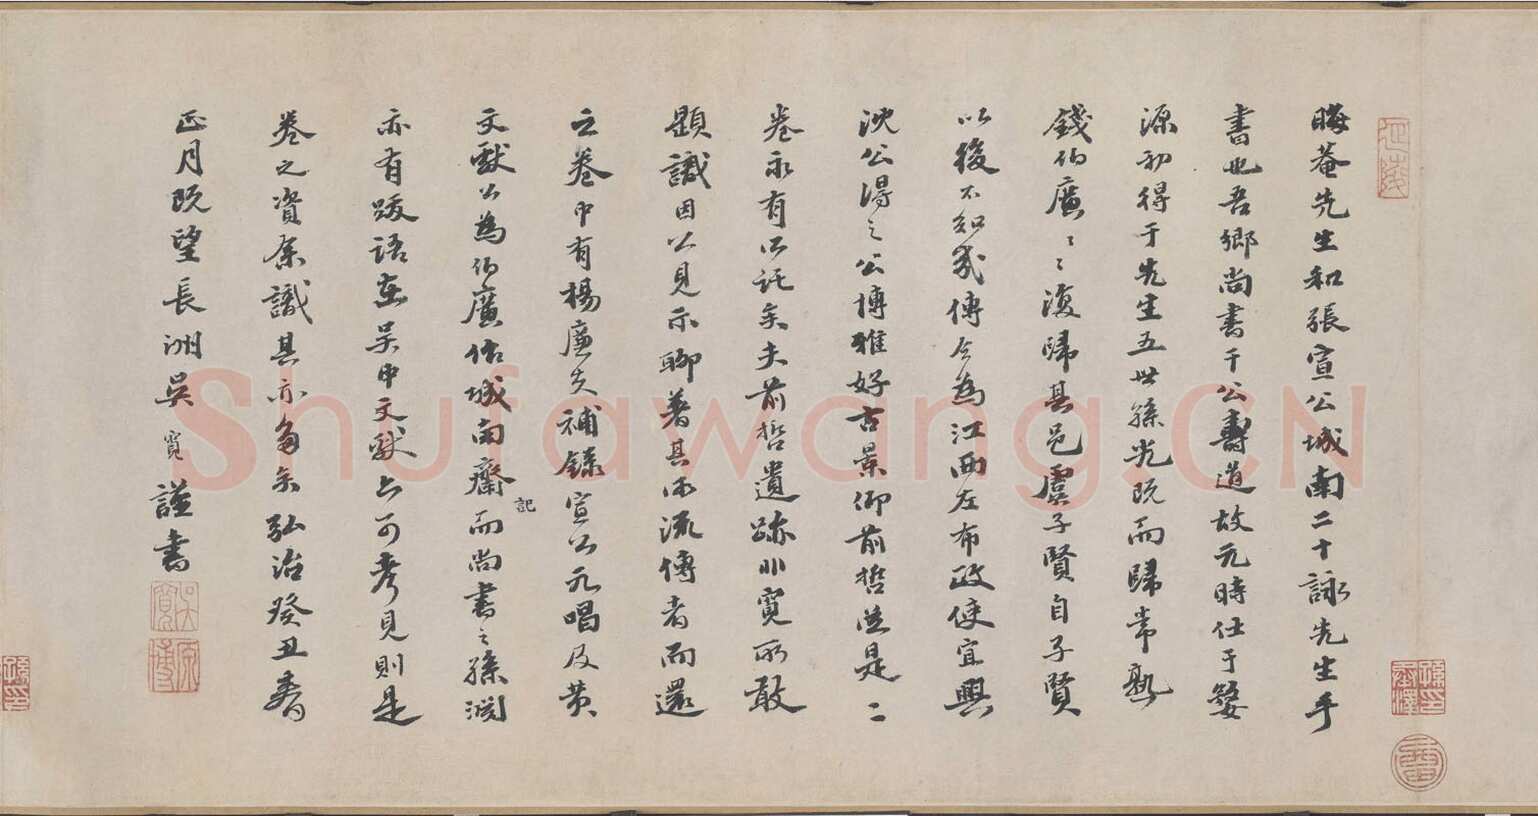 晦菴先生和張宣公城南二十詠先生手
書也吾鄉尚書干公壽道故元時仕于婺
源初得于先生五世孫光既而歸常熟
錢伯廣〻〻復歸其邑虞子賢自子賢
以後不知幾傳今為江西左布政使宜興
沈公得之公博雅好古景仰前哲迨是二
卷永有所託矣夫前哲遺跡非寬所敢
題識因以見示聊著其所流傳者而還
之卷中有楊廉夫補錄宣公元唱及黃
文獻公為伯廣作城南齋記而尚書之孫淵
亦有跋語在吳中文獻亦可考見則是
卷之資余識其亦多矣弘治癸丑春
正月既望長洲吳寬謹書
延陵
吳寬
原博
Shufawang.CN